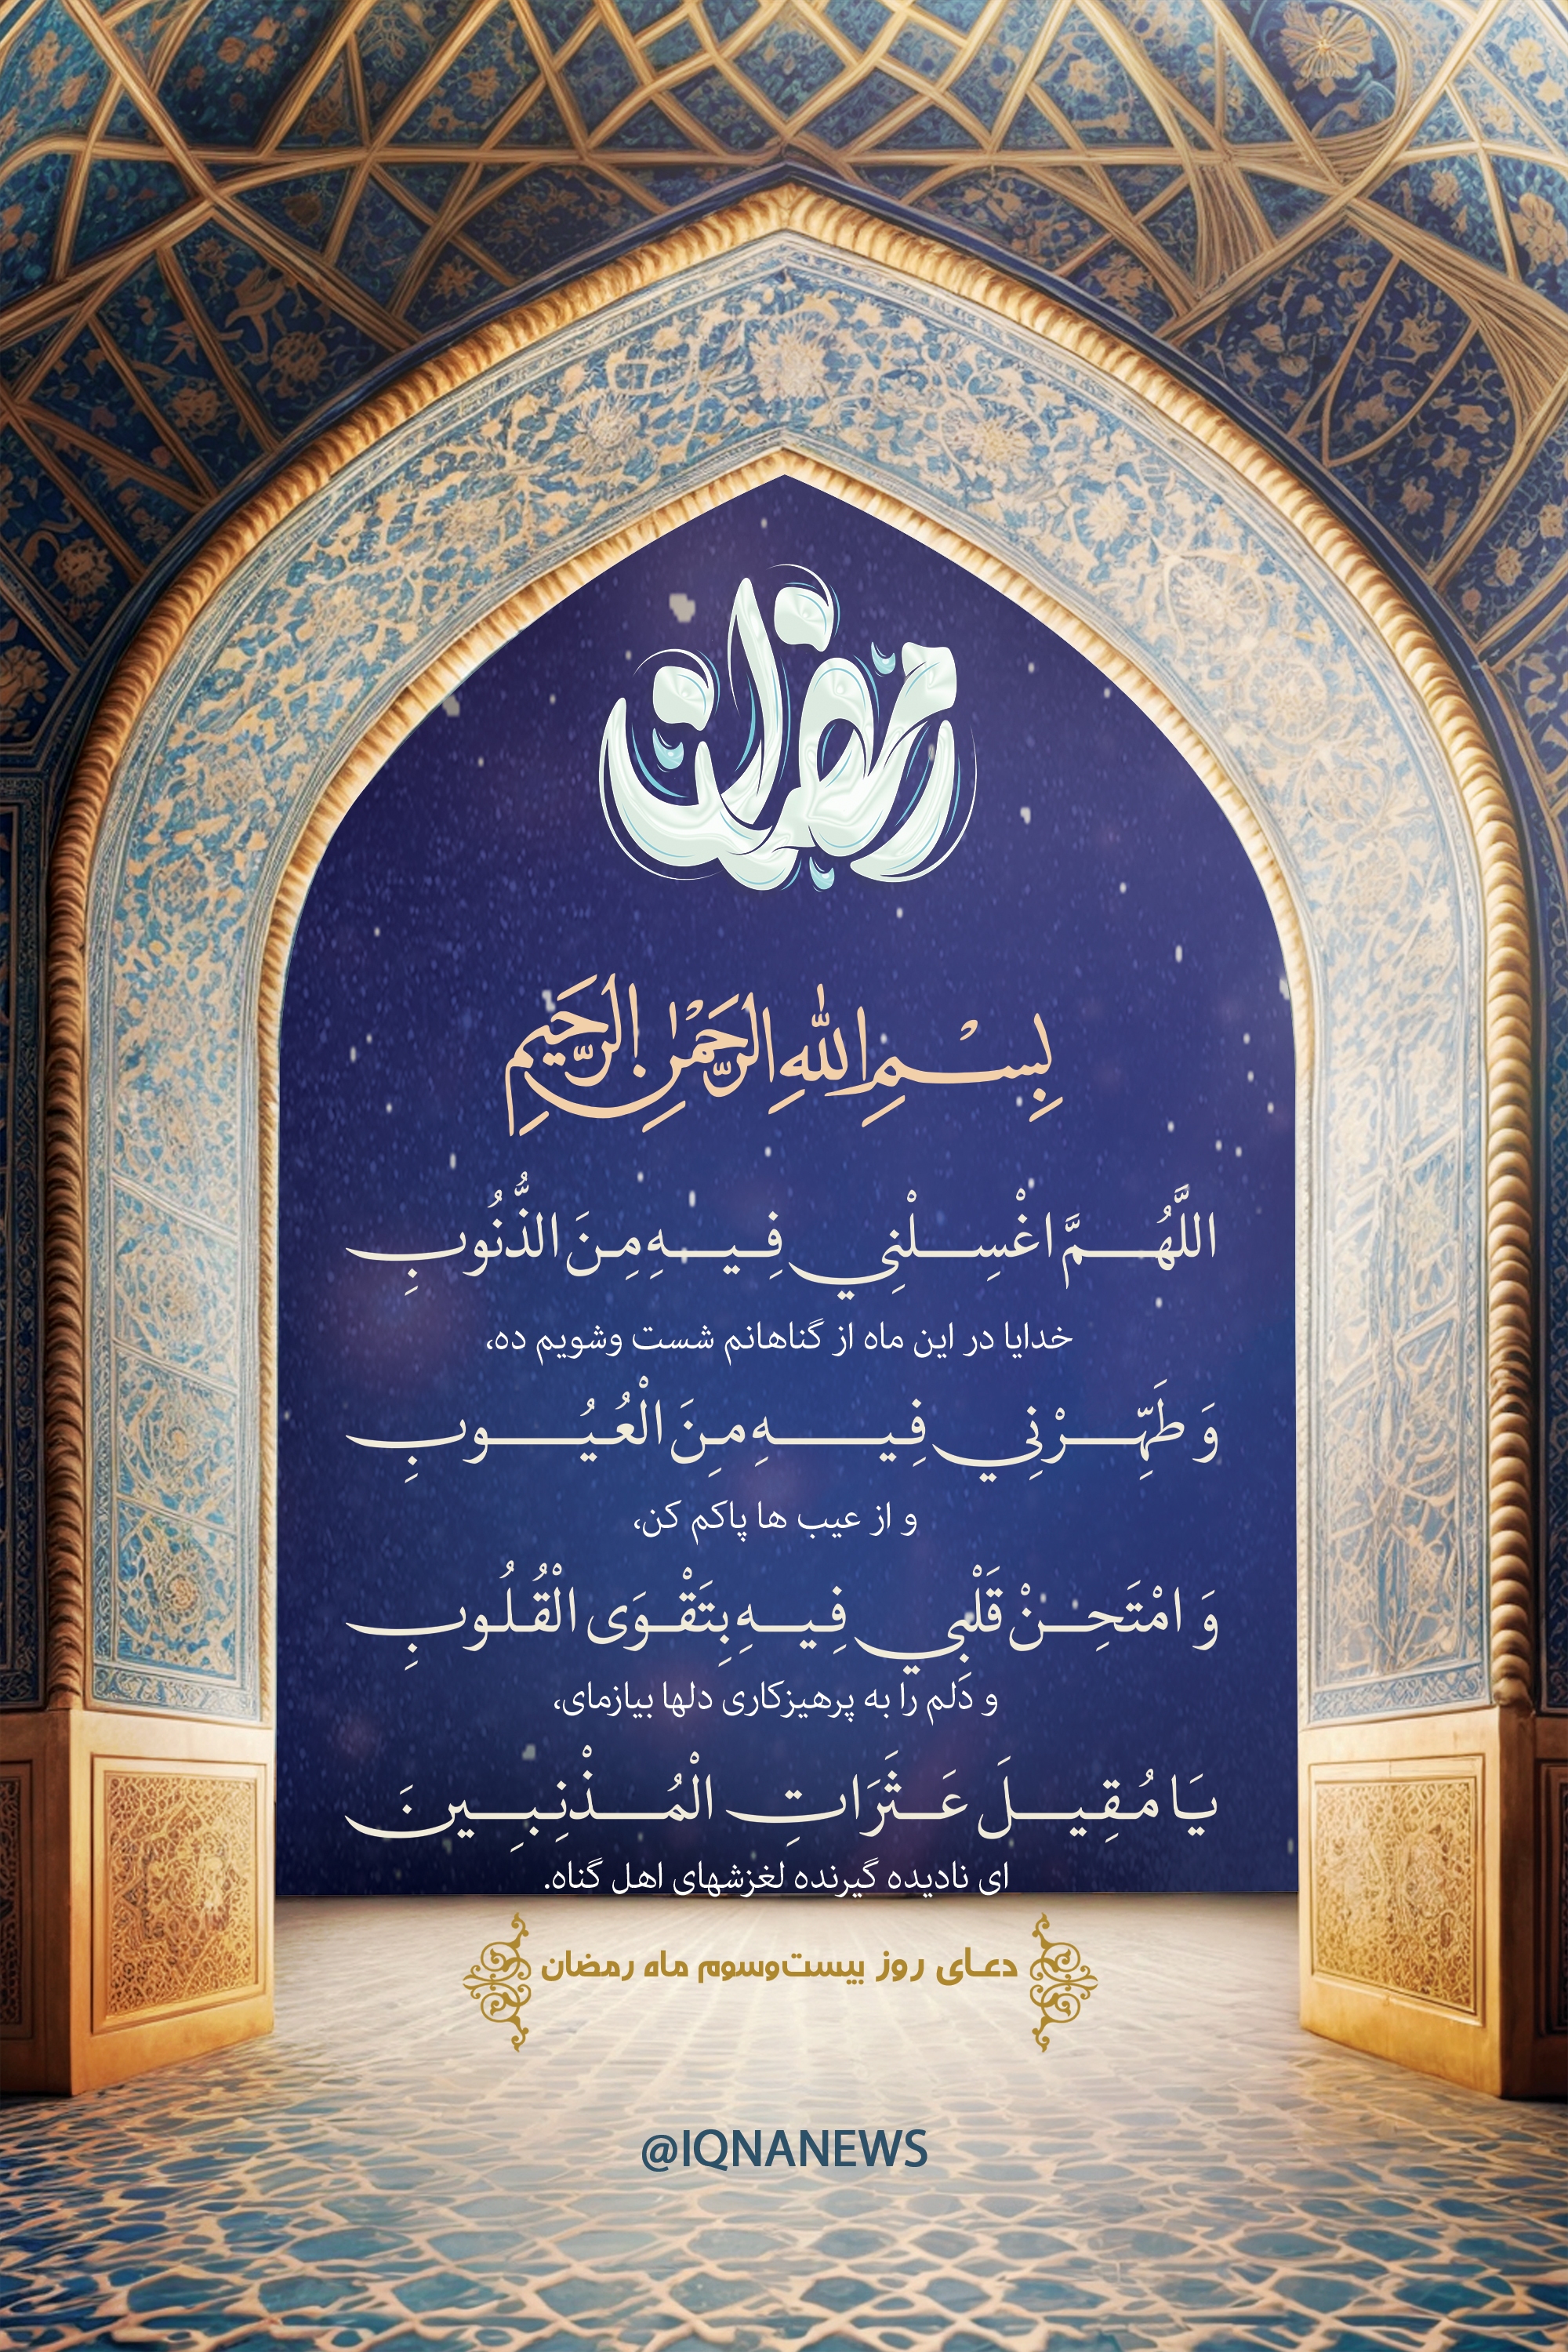 رمضان
بِسْمِ اللهِ الرَّحْمٰنِ الرَّحِيمِ
اللَّهُمَّ اغْسِلْنِي فِيهِ مِنَ الذُّنُوبِ
خدایا در این ماه از گناهانم شست وشویم ده،
وَ طَهِّرْنِي فِيهِ مِنَ الْعُيُوبِ
و از عیب ها پاکم کن،
وَ امْتَحِنْ قَلْبِي فِيهِ بِتَقْوَى الْقُلُوبِ
و دَلم را به پرهیزکاری دلها بیازمای،
يَا مُقِيلَ عَثَرَاتِ الْمُذْنِبِينَ
ای نادیده گیرنده لغزشهای اهل گناه.
دعای روز بیست‌وسوم ماه رمضان
@IQNANEWS